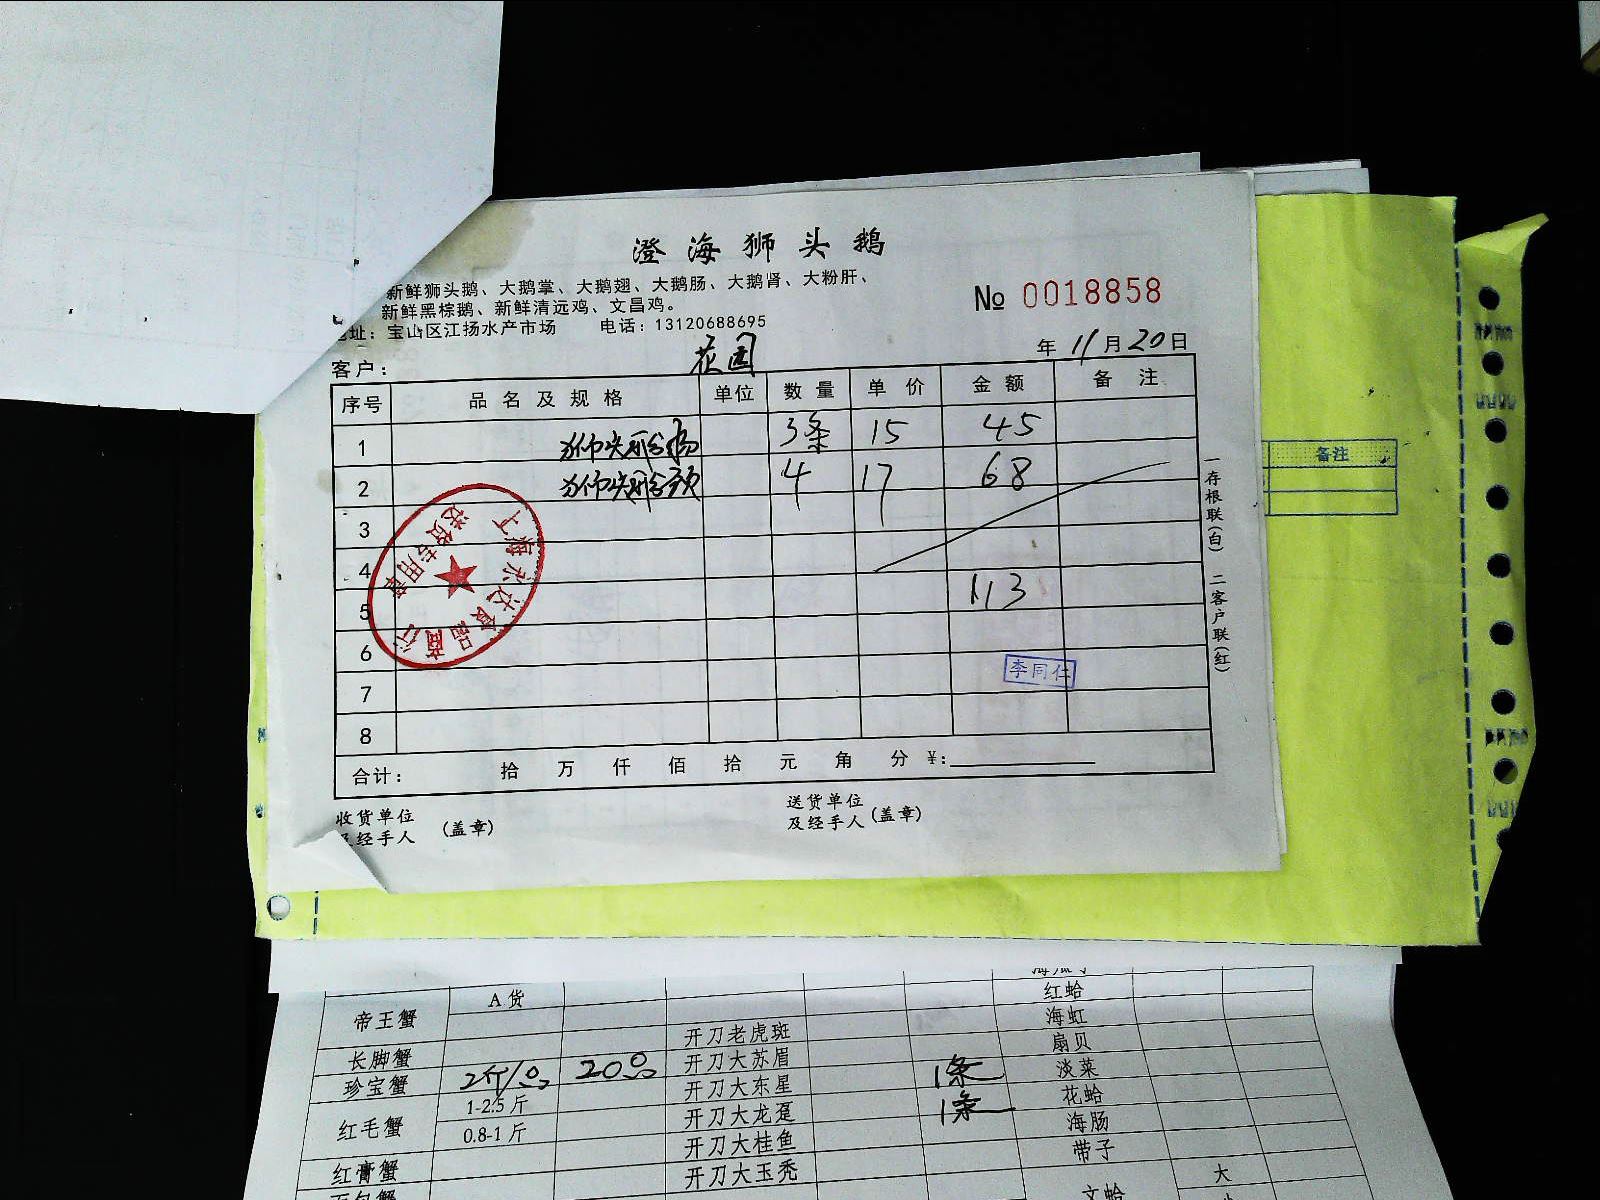 澄海狮头鹅
新鲜狮头鹅、大鹅掌、大鹅翅、大鹅肠、大鹅肾、大粉肝、
新鲜黑棕鹅、新鲜清远鸡、文昌鸡。
址：宝山区江扬水产市场 电话：13120688695
№ 0018858
客户： 花园
年 11月20日
序号 品名及规格 单位 数量 单价 金额 备注
1 狮头鹅肠 3条 15 45
2 狮头鹅颈 4 17 68
3
4
5 113
6
7
8
李同仁
合计： 拾 万 仟 佰 拾 元 角 分 ¥:
收货单位
及经手人 (盖章)
送货单位
及经手人 (盖章)
一存根联(白) 二客户联(红)
上海永达食品商行
送货专用章
备注
A货
帝王蟹
长脚蟹
珍宝蟹 2斤/只 20只
红毛蟹 1-2.5斤
0.8-1斤
红膏蟹
开刀老虎斑
开刀大苏眉
开刀大东星 1条
开刀大龙趸 1条
开刀大桂鱼
开刀大玉秃
红蛤
海虹
扇贝
淡菜
花蛤
海肠
带子
文蛤 大